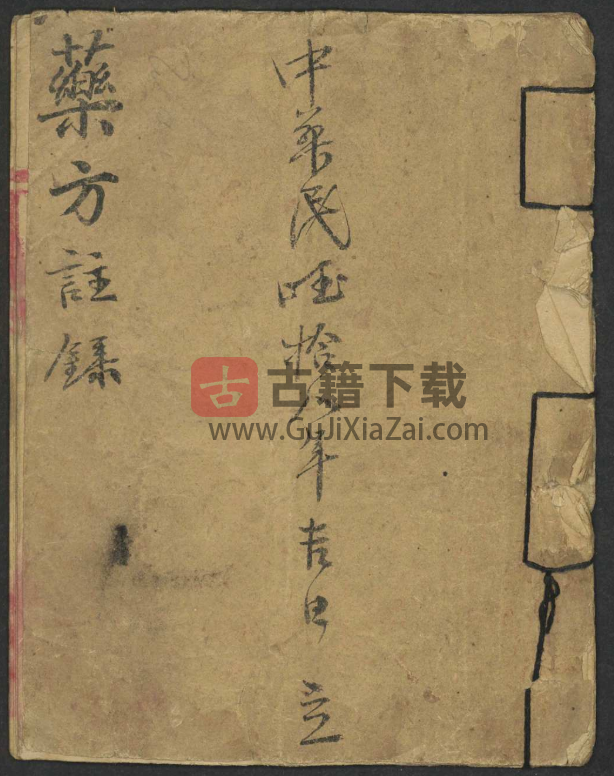 中華民囯拾八年吉日立
藥方註錄
古 古籍下载
www.GuJiXiaZai.com